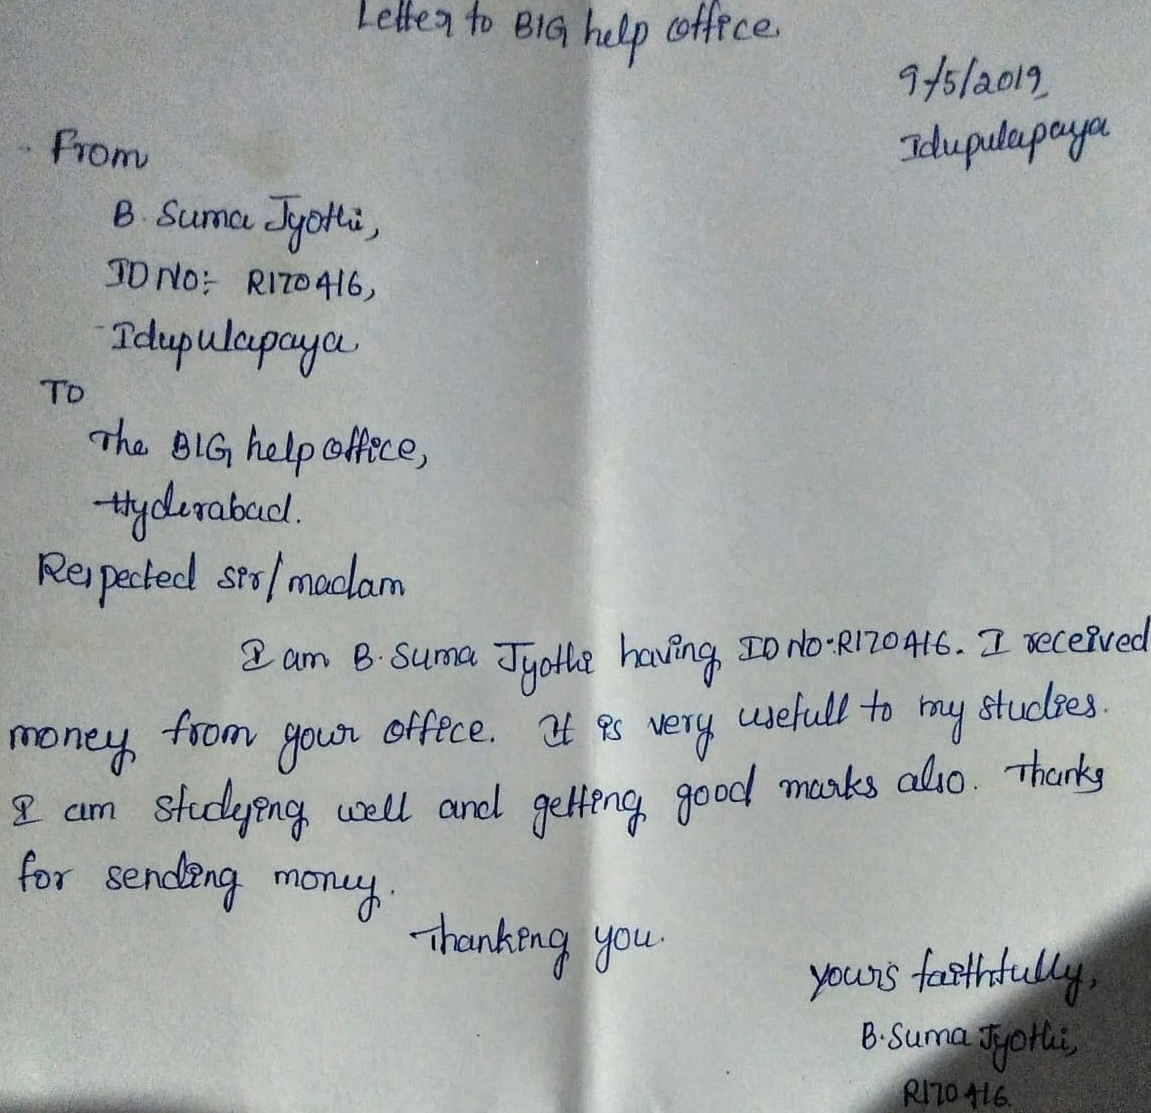 Letter to BIG help office.
9/5/2019
Idupulapaya
From
B. Suma Jyothi,
ID NO:- R170416,
Idupulapaya
To
The BIG help office,
Hyderabad.
Respected sir/madam
I am B. Suma Jyothi having ID NO:R170416. I received
money from your office. It is very usefull to my studies.
I am studying well and getting good marks also. Thanks
for sending money.
Thanking you.
yours faithfully,
B. Suma Jyothi,
R170416